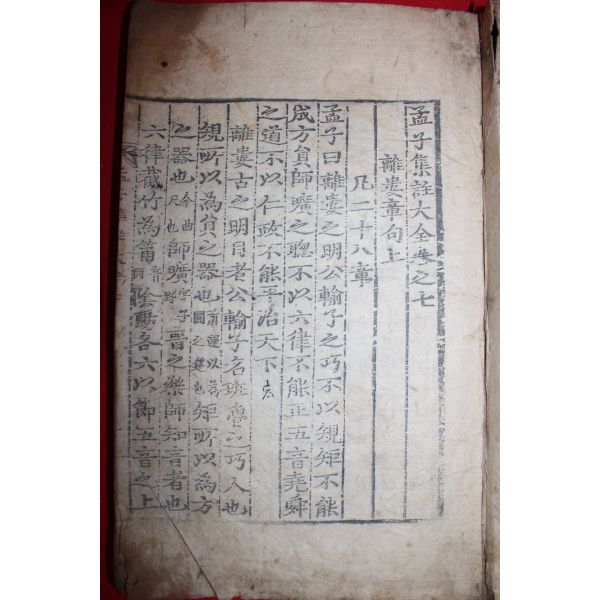 孟子集註大全卷之七
離婁章句上
凡二十八章
孟子曰離婁之明公輸子之巧不以規矩不能
成方員師曠之聰不以六律不能正五音堯舜
之道不以仁政不能平治天下
離婁古之明目者公輸子名班魯之巧人也
規所以為員之器也 矩所以為方
之器也 師曠 晉之樂師知音者也
六律截竹為筩 陰陽各六以節五音之上